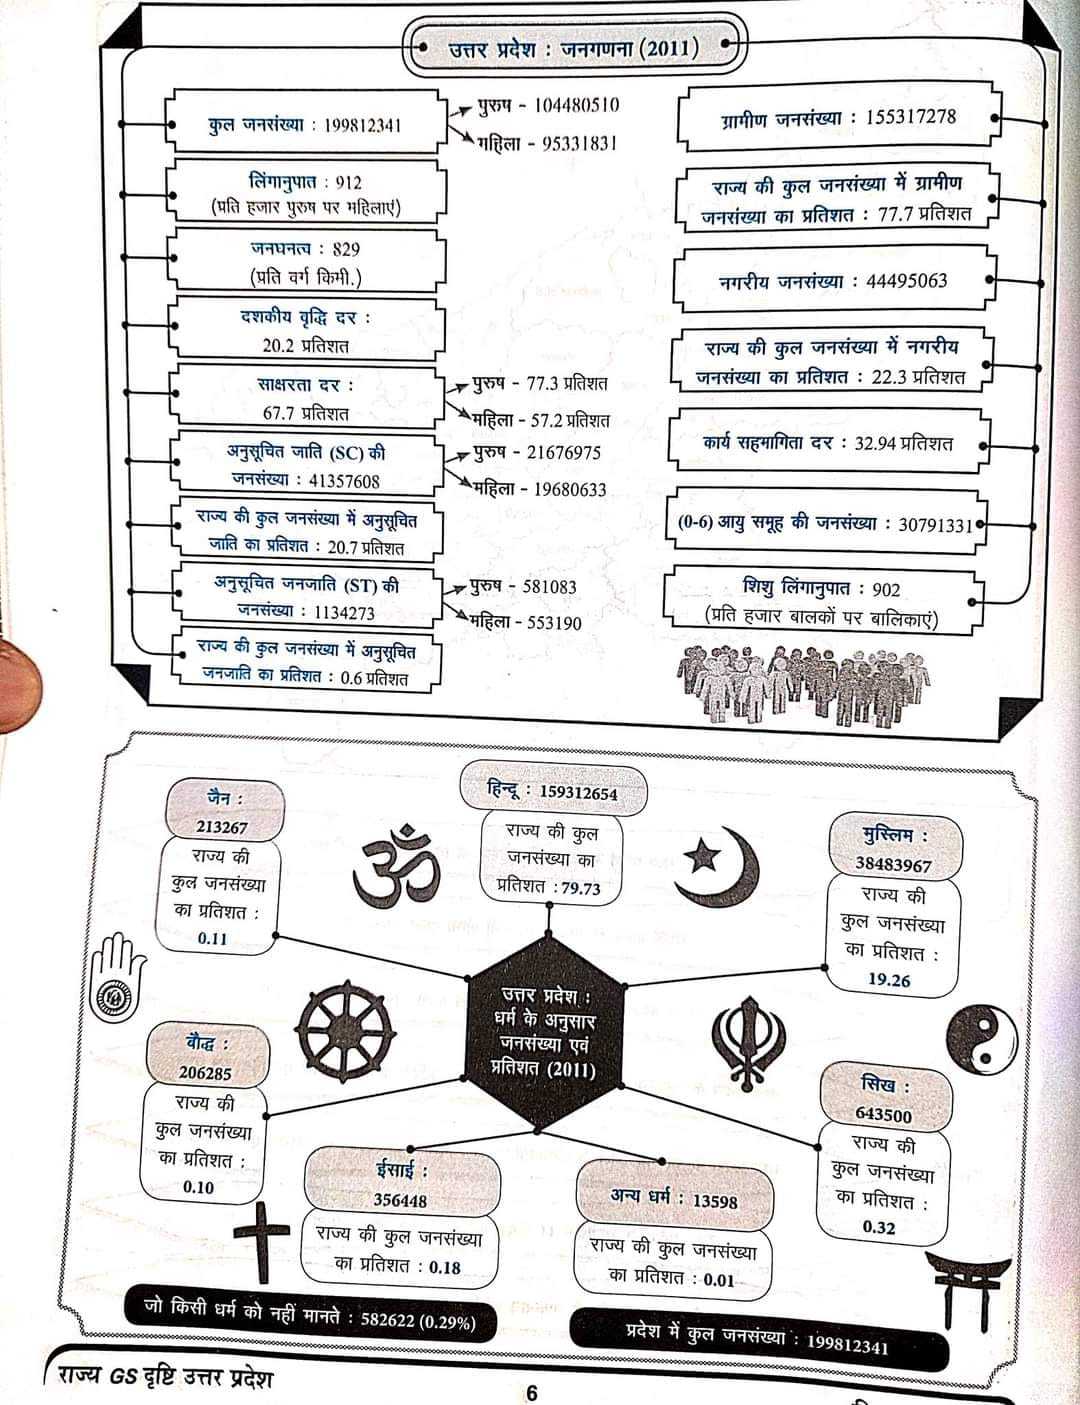 उत्तर प्रदेश : जनगणना (2011)
कुल जनसंख्या : 199812341
पुरुष - 104480510
महिला - 95331831
लिंगानुपात : 912
(प्रति हजार पुरुष पर महिलाएं)
जनघनत्व : 829
(प्रति वर्ग किमी.)
दशकीय वृद्धि दर :
20.2 प्रतिशत
साक्षरता दर :
67.7 प्रतिशत
पुरुष - 77.3 प्रतिशत
महिला - 57.2 प्रतिशत
अनुसूचित जाति (SC) की
जनसंख्या : 41357608
पुरुष - 21676975
महिला - 19680633
राज्य की कुल जनसंख्या में अनुसूचित
जाति का प्रतिशत : 20.7 प्रतिशत
अनुसूचित जनजाति (ST) की
जनसंख्या : 1134273
पुरुष - 581083
महिला - 553190
राज्य की कुल जनसंख्या में अनुसूचित
जनजाति का प्रतिशत : 0.6 प्रतिशत
ग्रामीण जनसंख्या : 155317278
राज्य की कुल जनसंख्या में ग्रामीण
जनसंख्या का प्रतिशत : 77.7 प्रतिशत
नगरीय जनसंख्या : 44495063
राज्य की कुल जनसंख्या में नगरीय
जनसंख्या का प्रतिशत : 22.3 प्रतिशत
कार्य सहमागिता दर : 32.94 प्रतिशत
(0-6) आयु समूह की जनसंख्या : 30791331
शिशु लिंगानुपात : 902
(प्रति हजार बालकों पर बालिकाएं)
हिन्दू : 159312654
राज्य की कुल
जनसंख्या का
प्रतिशत : 79.73
जैन :
213267
राज्य की
कुल जनसंख्या
का प्रतिशत :
0.11
मुस्लिम :
38483967
राज्य की
कुल जनसंख्या
का प्रतिशत :
19.26
उत्तर प्रदेश :
धर्म के अनुसार
जनसंख्या एवं
प्रतिशत (2011)
बौद्ध :
206285
राज्य की
कुल जनसंख्या
का प्रतिशत :
0.10
सिख :
643500
राज्य की
कुल जनसंख्या
का प्रतिशत :
0.32
ईसाई :
356448
राज्य की कुल जनसंख्या
का प्रतिशत : 0.18
अन्य धर्म : 13598
राज्य की कुल जनसंख्या
का प्रतिशत : 0.01
जो किसी धर्म को नहीं मानते : 582622 (0.29%)
प्रदेश में कुल जनसंख्या : 199812341
राज्य GS दृष्टि उत्तर प्रदेश
6